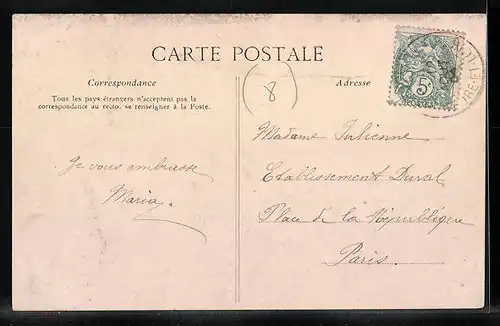 CARTE POSTALE
Correspondance
Tous les pays étrangers n'acceptent pas la
correspondance au recto, se renseigner à la Poste.
Je vous embrasse
Maria
8
Adresse
5c
Madame Julienne
Etablissement Duval
Place de la République
Paris.